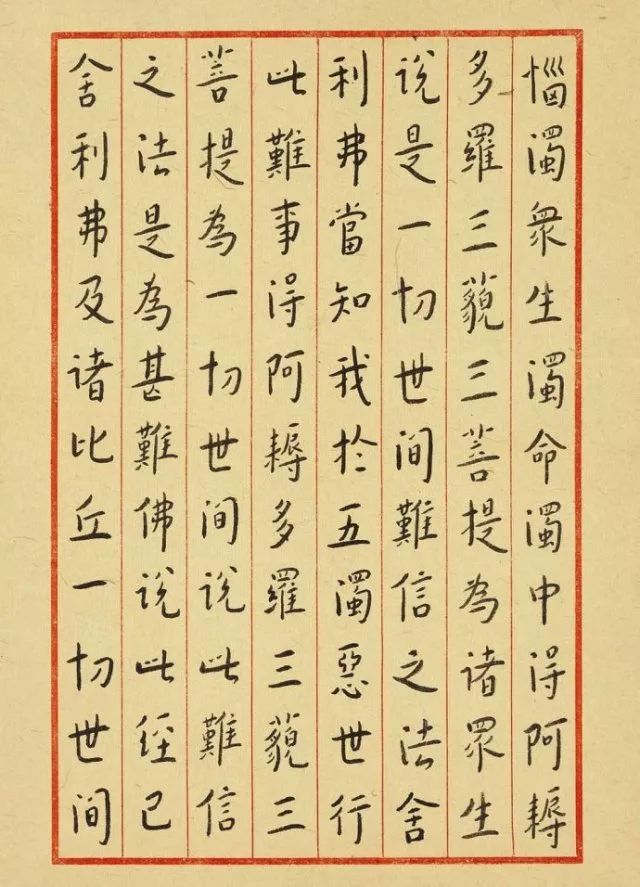 惱濁衆生濁命濁中得阿耨
多羅三藐三菩提為諸眾生
說是一切世間難信之法舍
利弗當知我於五濁惡世行
此難事得阿耨多羅三藐三
菩提為一切世間說此難信
之法是為甚難佛說此經已
舍利弗及諸比丘一切世間